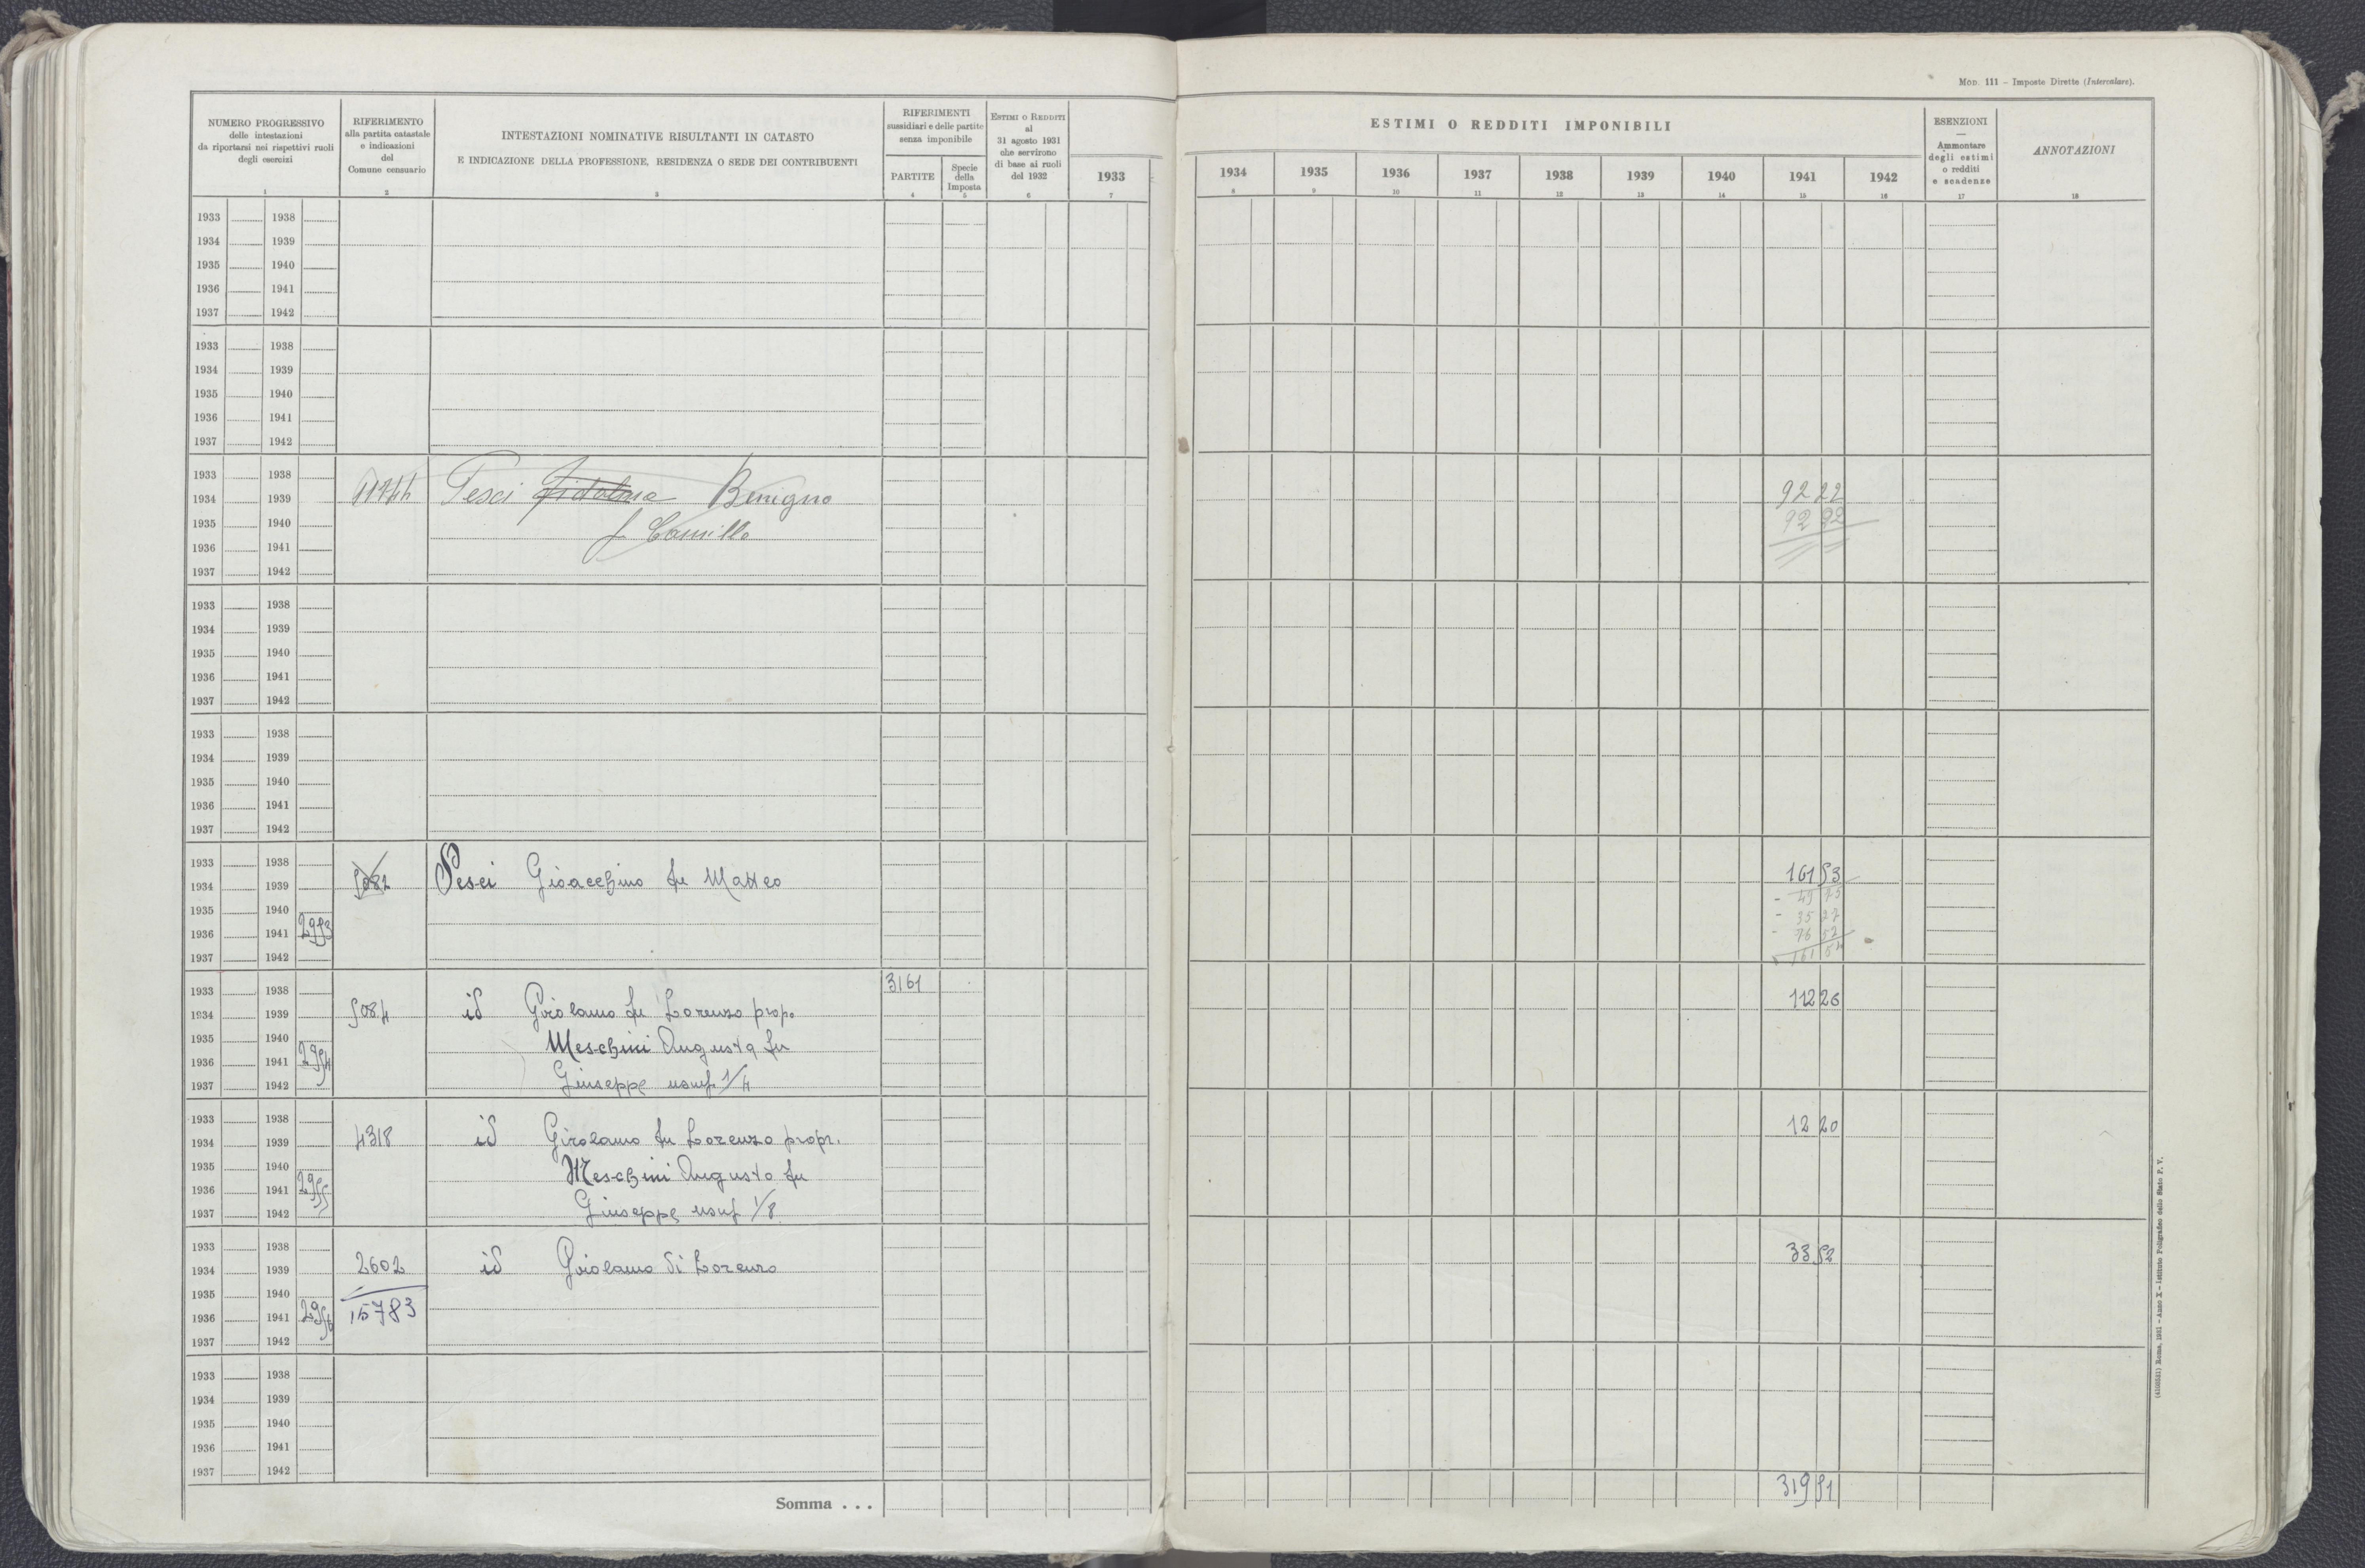 MOD. 111 – Imposte Dirette (Intercalare).
NUMERO PROGRESSIVO
delle intestazioni
da riportarsi nei rispettivi ruoli
degli esercizi
1
RIFERIMENTO
alla partita catastale
e indicazioni
del
Comune censuario
2
INTESTAZIONI NOMINATIVE RISULTANTI IN CATASTO
E INDICAZIONE DELLA PROFESSIONE, RESIDENZA O SEDE DEI CONTRIBUENTI
3
RIFERIMENTI
sussidiari e delle partite
senza imponibile
PARTITE
4
Specie
della
Imposta
5
ESTIMI O REDDITI
al
31 agosto 1931
che servirono
di base ai ruoli
del 1932
6
1933
7
ESTIMI O REDDITI IMPONIBILI
1934 1935 1936 1937 1938 1939 1940 1941 1942
8 9 10 11 12 13 14 15 16
ESENZIONI
—
Ammontare
degli estimi
o redditi
e scadenze
17
ANNOTAZIONI
18
1933 1938
1934 1939
1935 1940
1936 1941
1937 1942
1933 1938
1934 1939
1935 1940
1936 1941
1937 1942
1933 1938
1934 1939 11744 Pesci Benigno 92 22
1935 1940 f Camillo 92 22
1936 1941
1937 1942
1933 1938
1934 1939
1935 1940
1936 1941
1937 1942
1933 1938
1934 1939
1935 1940
1936 1941
1937 1942
1933 1938
1934 1939 5082 Pesci Gioacchino fu Matteo 161 53
1935 1940 - 49 75
- 35 27
1936 1941 2953 - 76 52
1937 1942 161 54
1933 1938 3161
1934 1939 5084 id Girolamo fu Lorenzo prop. 112 26
1935 1940 Meschini Augusta fu
1936 1941 2954
1937 1942 Giuseppe usuf 1/4
1933 1938 12 20
1934 1939 4318 id Girolamo fu Lorenzo propr.
1935 1940 Meschini Augusta fu
1936 1941 2955
1937 1942 Giuseppe usuf 1/8
1933 1938 33 52
1934 1939 2602 id Girolamo di Lorenzo
1935 1940
1936 1941 2956 15783
1937 1942
1933 1938
1934 1939
1935 1940
1936 1941
1937 1942
Somma . . . 319 51
Roma, 1931 – Anno X – Istituto Poligrafico dello Stato P. V.